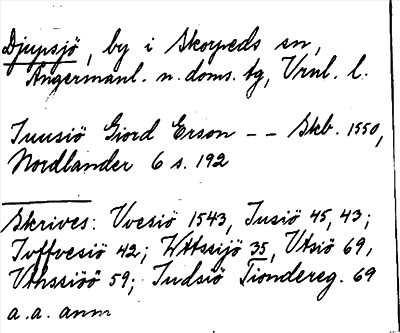 Djupsjö, by i Skorpeds sn,
Ångermanl. n. doms. tg, Vrnl. l.
Iuusiö Giord Erson -- Skb. 1550,
Nordlander 6 s. 192
Skrives: Vvesiö 1543, Iusiö 45, 43;
Ivffvesiö 42; Wttssijö 35, Vtsiö 69,
Vthssiöö 59; Iudsiö Tiondereg. 69
a.a. anm